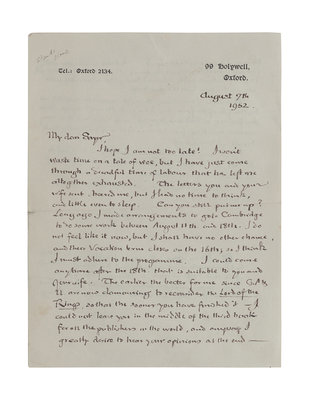 99 Holywell,
Tel.: Oxford 2134.
Oxford.
August 7th
1952.
My dear Sayer,
I hope I am not too late! I won't
waste time on a tale of woe, but I have just come
through a dreadful time of labour that has left me
altogether exhausted. The letters you and your
wife sent, heard me, but I had no time to think,
and little even to sleep. Can you still put me up?
Long ago I made arrangements to go to Cambridge
to do some work between August 11th and 18th. I do
not feel like it now, but I shall have no other chance,
and their Vacation term closes on the 16th, so I think
I must adhere to the programme. I could come
anytime after the 18th that is suitable to you and
your wife. The earlier the better for me since G. A &
U. are now clamouring to reconsider the Lord of the
Rings so that the sooner you have finished it — I
could not leave you in the middle of the third book
for all the publishers in the world, and anyway I
greatly desire to hear your opinions at the end —